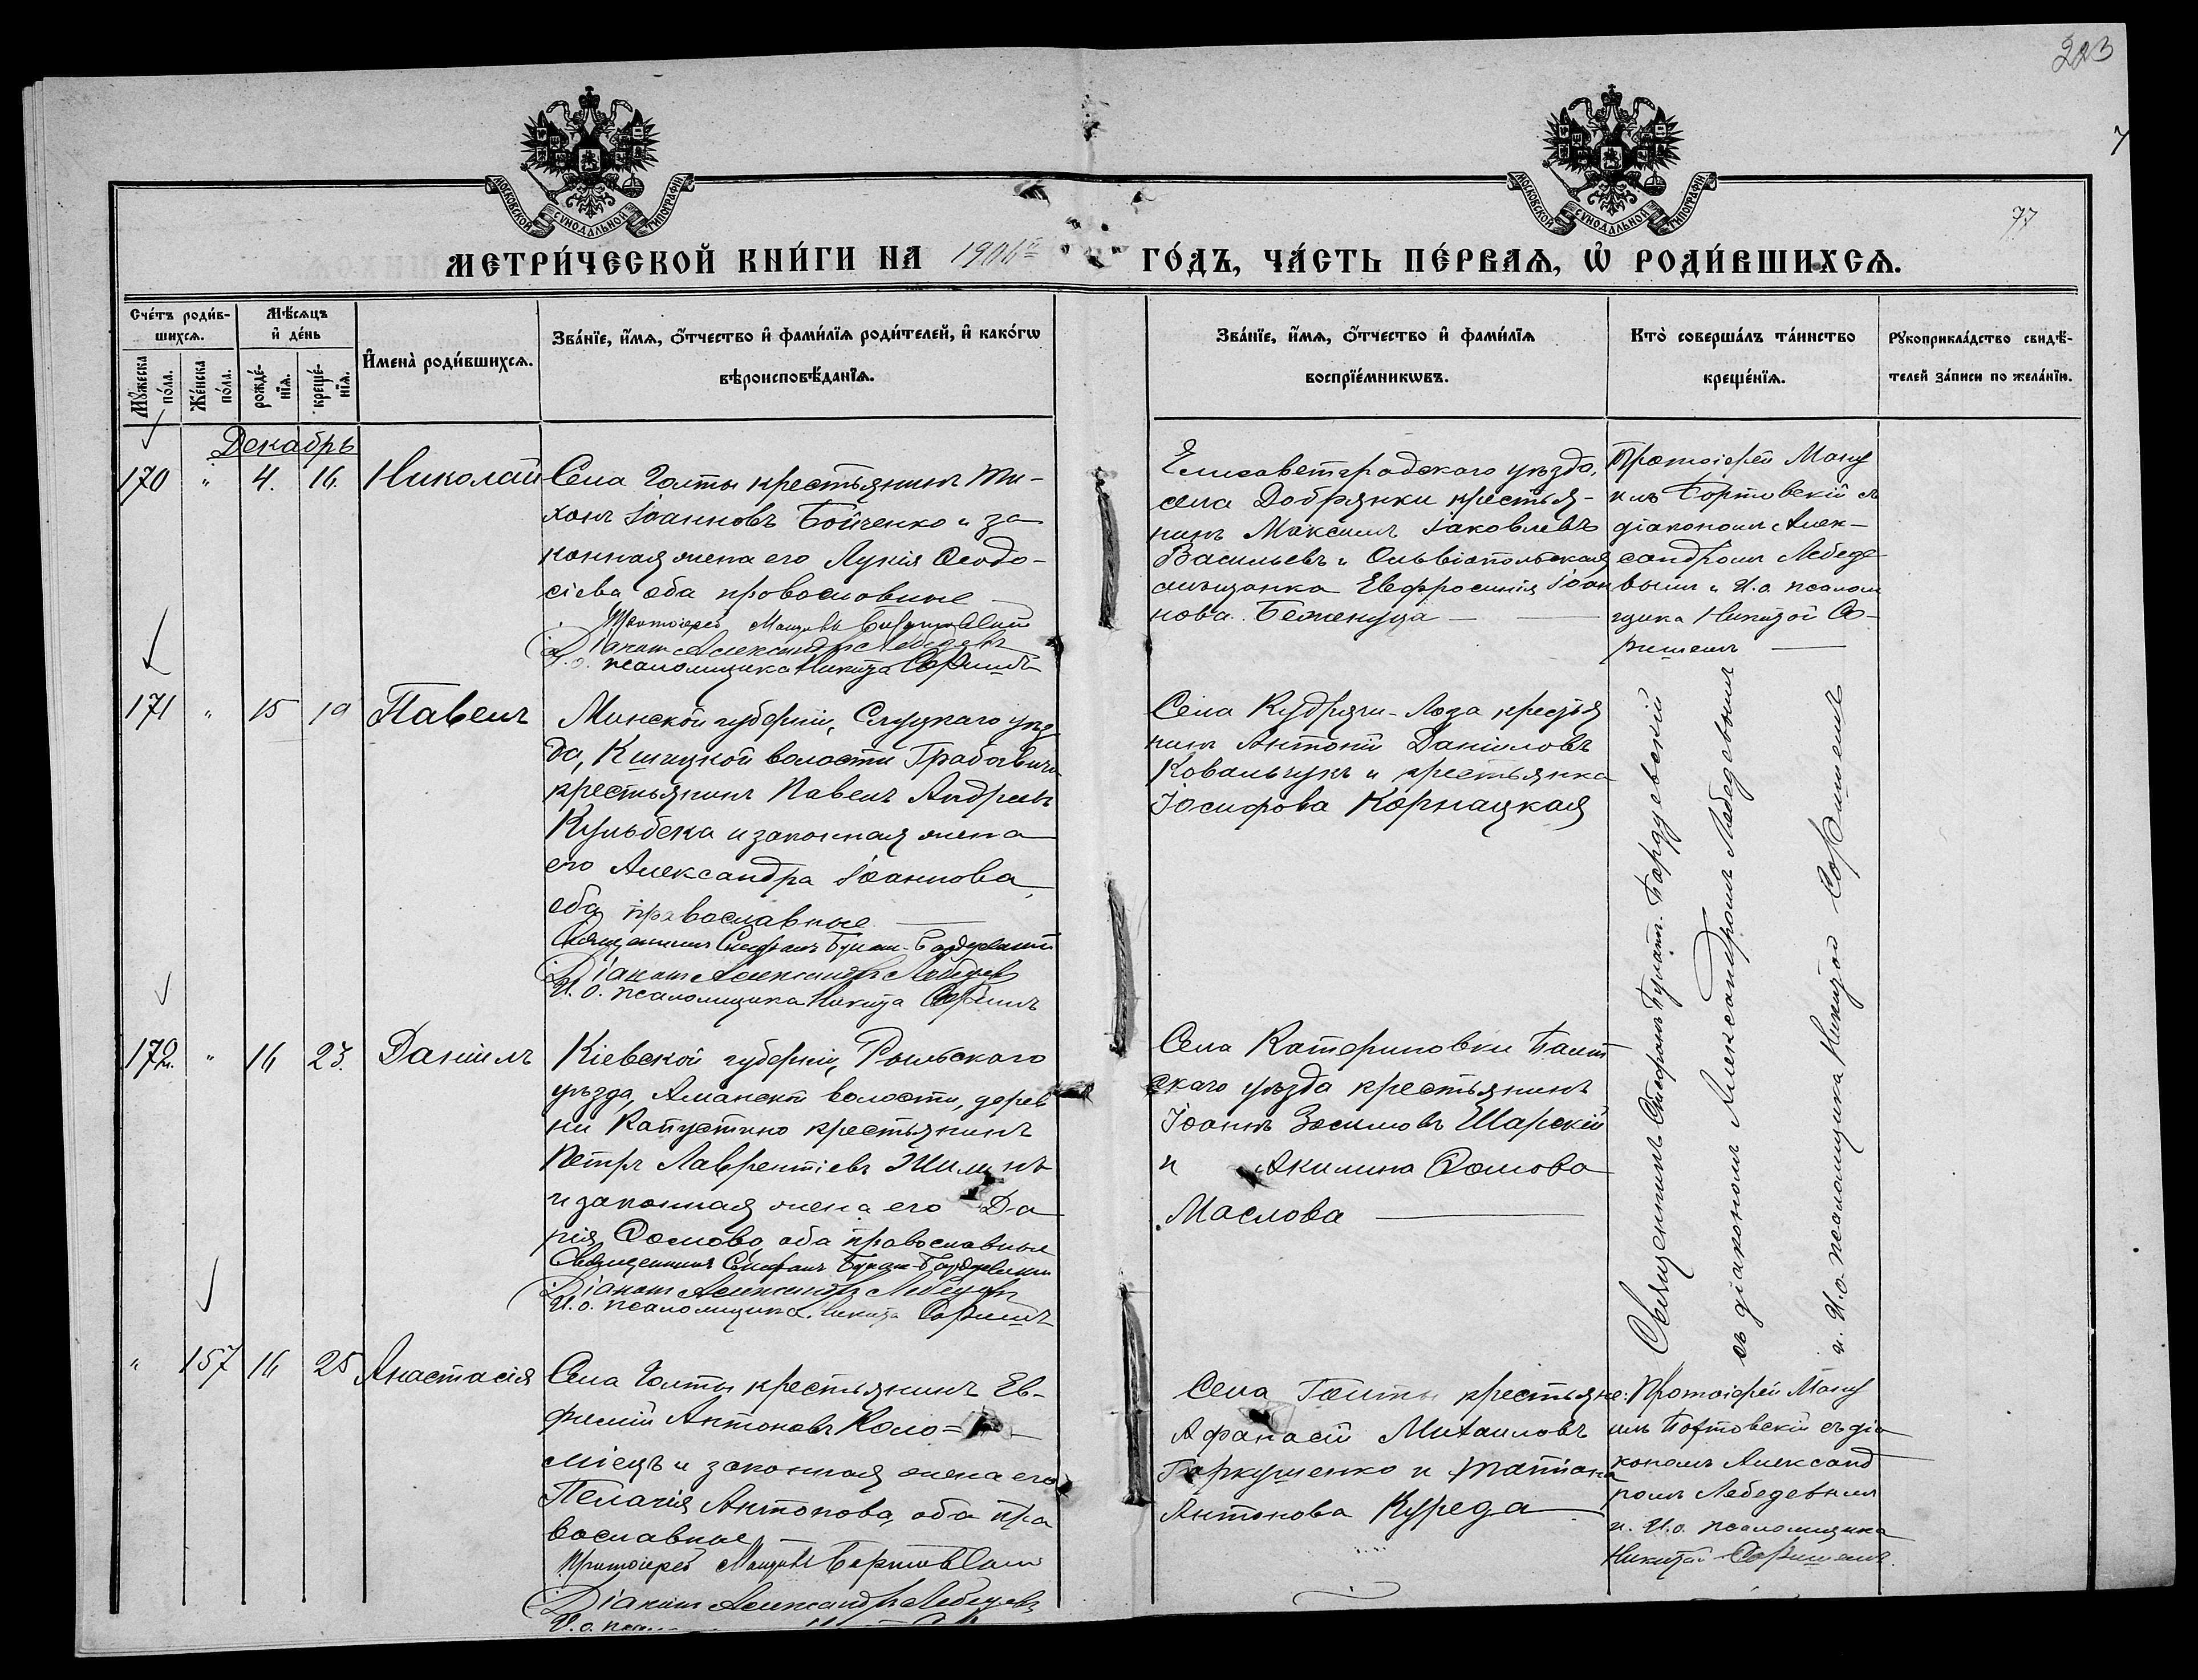 223
7
77
МОСКОВСКОЙ СѴНОДАЛЬНОЙ ТИПОГРАФІИ
МОСКОВСКОЙ СѴНОДАЛЬНОЙ ТИПОГРАФІИ
МЕТРИ́ЧЕСКОЙ КНИ́ГИ НА ГО́ДЪ, ЧА́СТЬ ПЕ́РВАѦ, Ѡ҆ РОДИ́ВШИХСѦ.
Сче́тъ роди́в-
шихсѧ.
Мѣ́сѧцъ
и҆ де́нь
Мꙋ́жеска
по́ла.
Же́нска
по́ла.
рожде́-
нїѧ.
креще́-
нїѧ.
И҆мена̀ роди́вшихсѧ.
Зва́нїе, и҆́мѧ, ѻ҆́тчество и҆ фами́лїѧ роди́телей, и҆ како́гѡ
вѣроисповѣ́данїѧ.
Зва́нїе, и҆́мѧ, ѻ҆́тчество и҆ фами́лїѧ
воспрїе́мникѡвъ.
Кто̀ соверша́лъ та́инство
креще́нїѧ.
Рꙋкоприкла́дство свидѣ́-
телей за́писи по жела́нїю.
Декабрь
170 " 4. 16. Николай
Села Голты крестьянинъ Ти-
хонъ Іоанновъ Бойченко и за
конная жена его Лукія Ѳеодо-
сіева оба православные
Протоіерей
Діаконъ Александръ Лебедевъ
И. о. псаломщика Никита
Елисаветградскаго уѣзда,
села Добрянки крестья-
нинъ Максимъ Іаковлевъ
Васильевъ и Ольвіопольская
мѣщанка Евфросинія Іоан
нова Беженуца
Протоіерей Ману
илъ Бортовскій съ
діакономъ Алек-
сандромъ Лебеде
вымъ и И. о. псалом
щика Никитой
171 " 15 19 Павелъ
Минской губерніи, Слуцкаго уѣз
да, волости
крестьянинъ Павелъ Андреевъ
Кульбека и законная жена
его Александра Іоаннова,
оба православные
Священникъ Стефанъ
Діаконъ Александръ Лебедевъ
И. о. псаломщика Никита
Села Кудряги-Лоза крестья
нинъ Антоній Даніиловъ
Ковальчукъ и крестьянка
Іосифова Корнацкая
Священникъ Стефанъ
съ діакономъ Александромъ Лебедевымъ
и. И. о. псаломщика Никитой
172. " 16 23. Даніилъ
Кіевской губерніи,
уѣзда, волости, дерев
ни Капустино крестьянинъ
Петръ Лаврентіевъ
и законная жена его Да
рія Ѳомова, оба православные
Священникъ Стефанъ
Діаконъ Александръ Лебедевъ
И. о. псаломщика Никита
Села Катериновки Балт
скаго уѣзда крестьянинъ
Іоаннъ Зосимовъ Шарскій
и Акилина Ѳомова
Маслова
" 157 16 25 Анастасія
Села Голты крестьянинъ Ев-
фимій Антоновъ Коло=
міецъ и законная жена его
Пелагія Антонова, оба пра
вославные
Протоіерей
Діаконъ Александръ Лебедевъ
И. о.
Села Голты крестьяне:
Афанасій Михаиловъ
и Татіана
Антонова Куреда
Протоіерей Ману
илъ Бортовскій съ діа
кономъ Александ
ромъ Лебедевымъ
и. И. о. псаломщика
Никитой